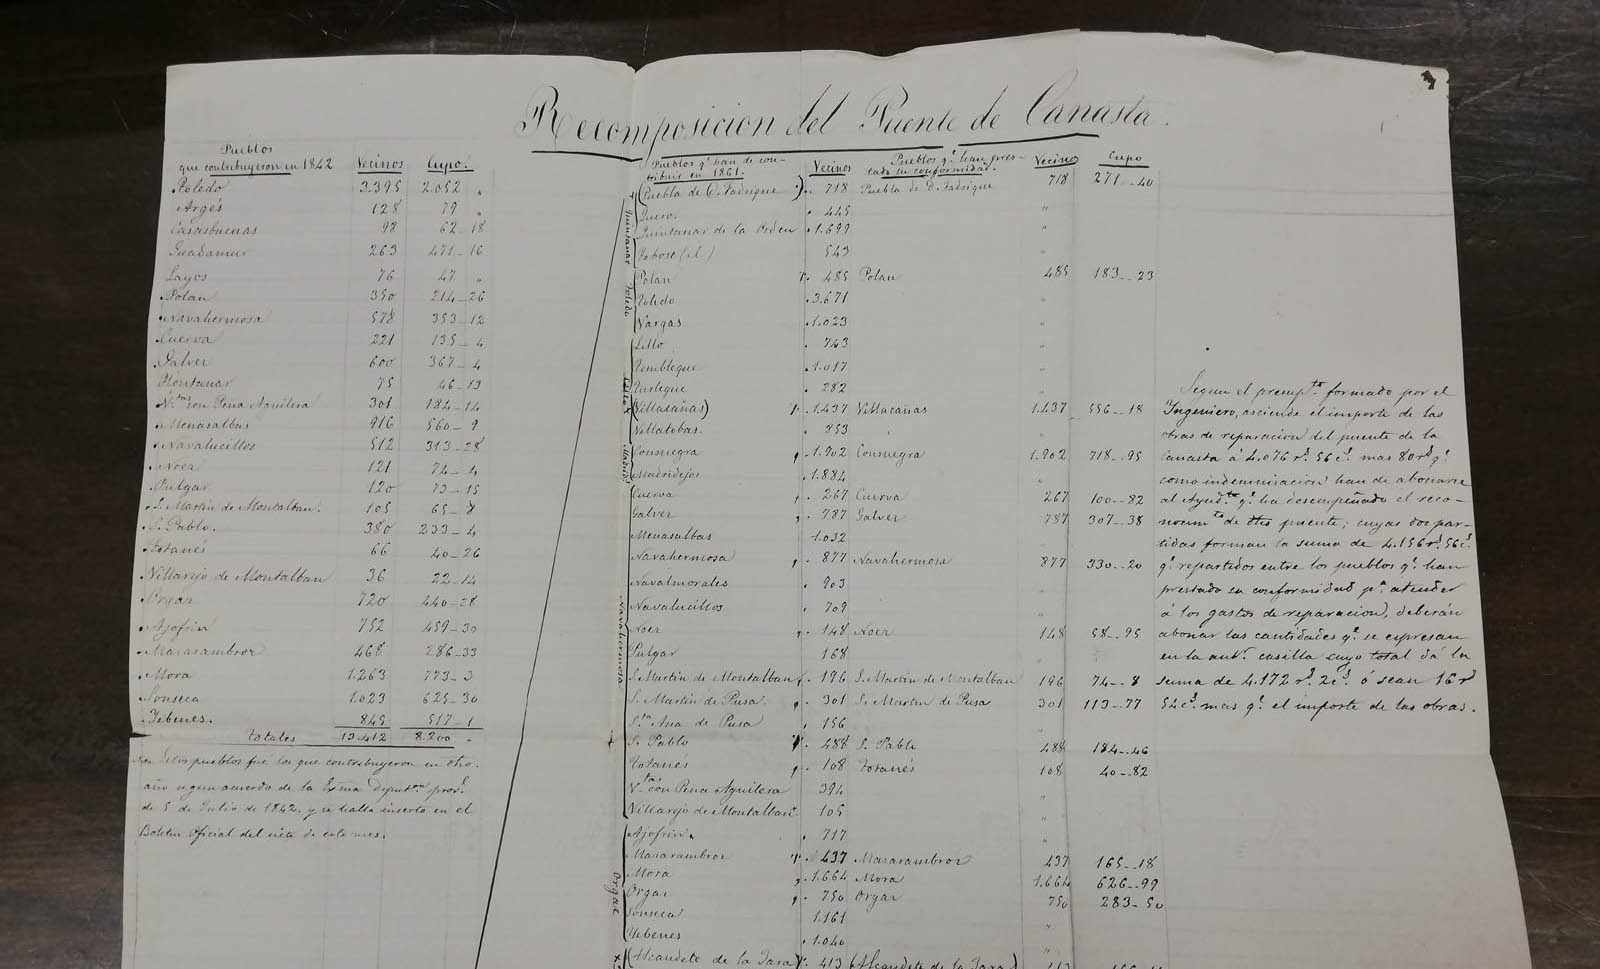 Recomposicion del Puente de Canasta.
Pueblos
que contribuyeron en 1842 Vecinos Cupo.
Toledo 3.395 2.052 "
Argés 128 79 "
Casasbuenas 98 62 18
Guadamur 263 471-16
Layos 76 47 "
Polan 350 214-26
Navahermosa 578 353-12
Cuerva 221 135-4
Galver 600 367-4
Hontanar 75 46-13
V.tas con Peña Aguilera 301 184-14
Menasalbas 916 560-9
Navalucillos 512 313-28
Noez 121 74-4
Pulgar 120 73-15
S. Martin de Montalban. 105 65-8
S. Pablo. 380 233-4
Totanés 66 40-26
Villarejo de Montalban 36 22-14
Orgaz 720 440-28
Ajofrin 752 459-30
Mazarambroz 468 286-33
Mora 1.263 773-3
Sonseca 1.023 625-30
Yebenes. 845 517-1
totales 13.412 8.200 "
Estos pueblos fué los que contribuyeron en dho.
año segun acuerdo de la Exma diputon provl.
de 5 de Julio de 1842, y se halla inserto en el
Boletin Oficial del siete de este mes.
Pueblos q.e han de con-
tribuir en 1861. Vecinos Pueblos q.e han pres-
tado su conformidad. Vecinos Cupo
Quintanar
(Puebla de D. Fadrique) 718 Puebla de D. Fadrique 718 271--40
Quero. 445 "
Quintanar de la Orden 1.699 "
Toboso (el) 543
Toledo
Polan 485 Polan 485 183--23
Toledo 3.671 "
Vargas 1.023 "
Lillo
Lillo. 743 "
Tembleque 1.017 "
Turleque 282 "
(Villacañas) 1.437 Villacañas 1.437 556--18
Villatobas. 853 "
Madrid.s
Consuegra 1.902 Consuegra 1.902 718--95
Madridejos 1.884 "
Navahermosa
Cuerva 267 Cuerva 267 100--82
Galver 787 Galver 787 307--38
Menasalbas 1.032
Navahermosa 877 Navahermosa 877 330--20
Navalmorales 903
Navalucillos 709 "
Noez 148 Noez 148 58--95
Pulgar 168 "
S. Martin de Montalban 196 S. Martin de Montalban 196 74--8
S. Martin de Pusa. 301 S. Martin de Pusa 301 113--77
S.ta Ana de Pusa 156 "
S. Pablo 488 S. Pablo 488 184--46
Totanés 108 Totanés 108 40--82
V.tas con Peña Aguilera 394 "
Villarejo de Montalban 105 "
Orgaz
Ajofrin. 717 "
Mazarambroz 437 Mazarambroz 437 165--18
Mora 1.664 Mora 1.664 626--99
Orgaz 750 Orgaz 750 283-50
Sonseca 1.161 "
Yebenes 1.040 "
(Alcaudete de la Jara) 413 (Alcaudete de la Jara)
Segun el presup.to formado por el
Ingeniero, asciende el importe de las
obras de reparacion del puente de la
Canasta á 4.076 r.s 56 c.s mas 80 r.s q.e
como indemnizacion han de abonarse
al Ayud.te q.e ha desempeñado el reco-
nocim.to de dho puente; cuyas dos par-
tidas forman la suma de 4.156 r.s 56 c.s
q.e repartidos entre los pueblos q.e han
prestado su conformidad p.a atender
á los gastos de reparacion, deberán
abonar las cantidades q.e se expresan
en la ant.r casilla cuyo total dá la
suma de 4.172 r.s 2 c.s ó sean 16 r.s
54 c.s mas q.e el importe de las obras.